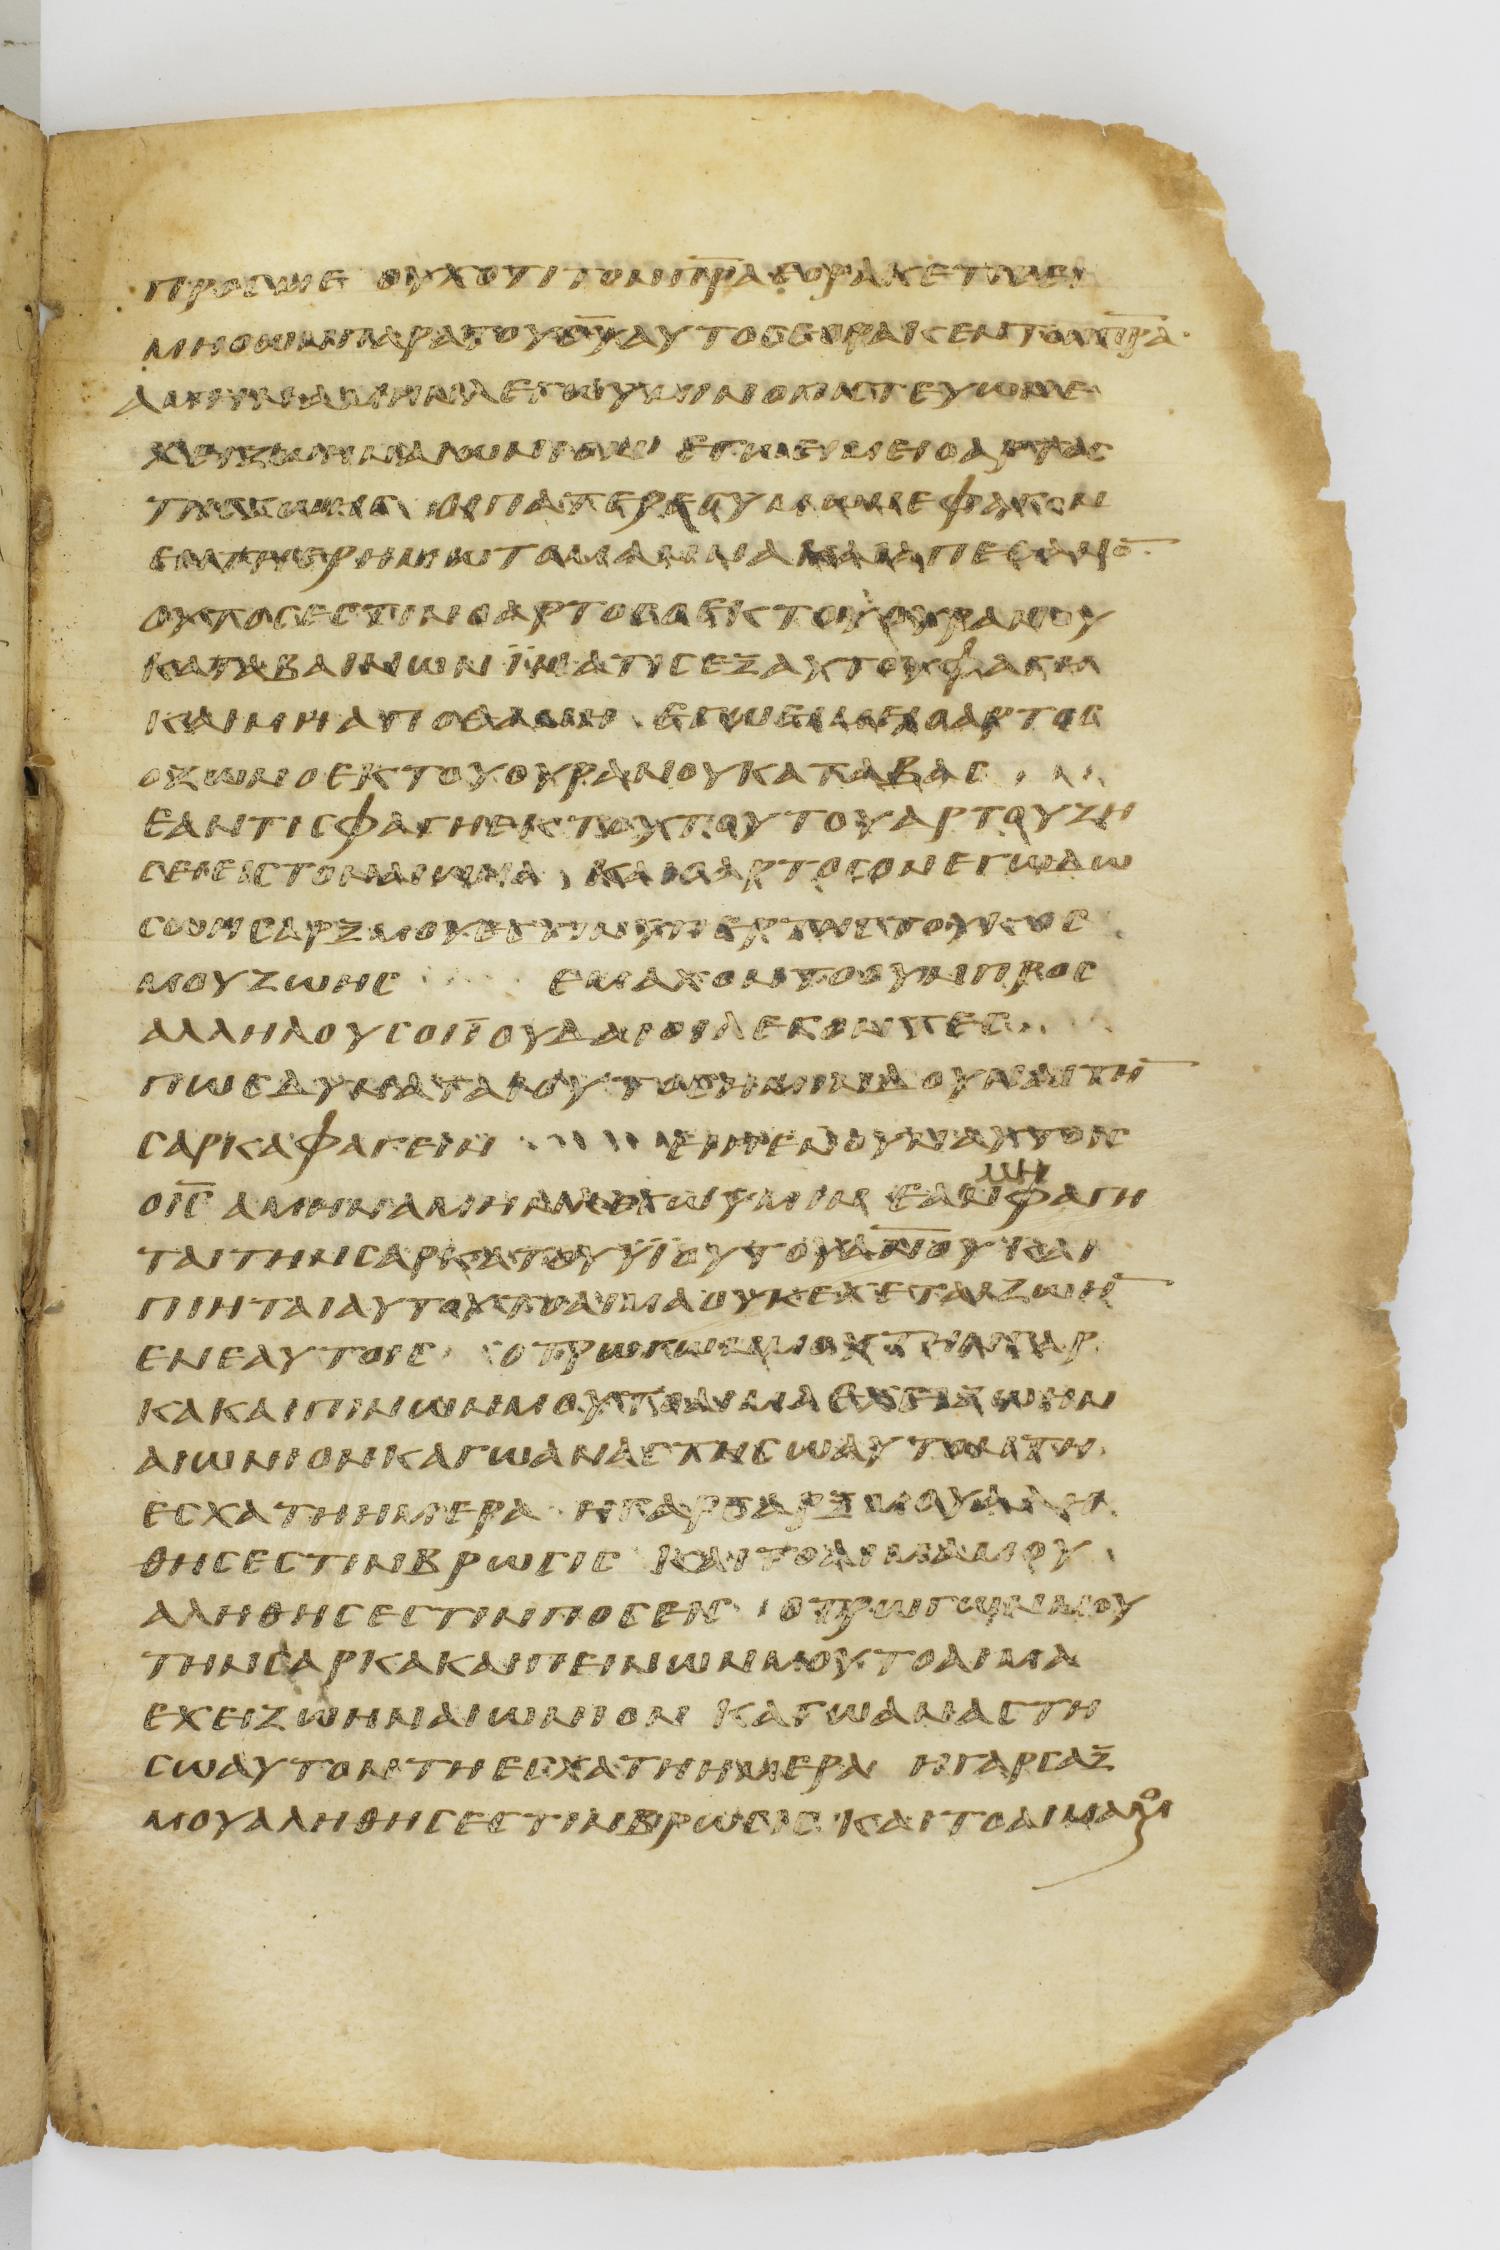 ΠΡΟϹΜΕ ΟΥΧΟΤΙΤΟΝΠ̅Ρ̅Α̅ΕΟΡΑΚΕΤΙϹΕΙ
ΜΗΟΩΝΠΑΡΑΤΟΥΘ̅Υ̅ΟΥΤΟϹΕΟΡΑΚΕΝΤΟΝΠ̅Ρ̅Α̅
ΑΜΗΝΑΜΗΝΛΕΓΩΥΜΙΝΟΠΙϹΤΕΥΩΝΕΙϹΕΜΕ
ΕΧΕΙΖΩΗΝΑΙΩΝΙΟΝ ΕΓΩΕΙΜΕΙΟΑΡΤΟϹ
ΤΗϹΖΩΗϹ ΟΙΠΑΤΕΡΕϹΥΜΩΝΕΦΑΓΟΝ
ΕΝΤΗΕΡΗΜΩΤΟΜΑΝΝΑΚΑΙΑΠΕΘΑΝΟ̅
ΟΥΤΟϹΕϹΤΙΝΟΑΡΤΟϹΟΕΚΤΟΥΟΥΡΑΝΟΥ
ΚΑΤΑΒΑΙΝΩΝΪΝΑΤΙϹΕΞΑΥΤΟΥΦΑΓΗ
ΚΑΙΜΗΑΠΟΘΑΝΗ ΕΓΩΕΙΜΕΙΟΑΡΤΟϹ
ΟΖΩΝΟΕΚΤΟΥΟΥΡΑΝΟΥΚΑΤΑΒΑϹ
ΕΑΝΤΙϹΦΑΓΗΕΚΤΟΥΤΟΥΤΟΥΑΡΤΟΥΖΗ
ϹΕΙΕΙϹΤΟΝΑΙΩΝΑ ΚΑΙΟΑΡΤΟϹΟΝΕΓΩΔΩ
ϹΩΗϹΑΡΞΜΟΥΕϹΤΙΝΥΠΕΡΤΗϹΤΟΥΚΟϹ
ΜΟΥΖΩΗϹ ΕΜΑΧΟΝΤΟΟΥΝΠΡΟϹ
ΑΛΛΗΛΟΥϹΟΙΪΟΥΔΑΙΟΙΛΕΓΟΝΤΕϹ
ΠΩϹΔΥΝΑΤΑΙΟΥΤΟϹΗΜΙΝΔΟΥΝΑΙΤΗ̅
ϹΑΡΚΑΦΑΓΕΙΝ ΕΙΠΕΝΟΥΝΑΥΤΟΙϹ
ΟΙ̅Ϲ̅ΑΜΗΝΑΜΗΝΛΕΓΩΥΜΙΝΕΑΝΜΗΦΑΓΗ
ΤΑΙΤΗΝϹΑΡΚΑΤΟΥΫΙΟΥΤΟΥΑ̅Ν̅Ο̅Υ̅ΚΑΙ
ΠΙΗΤΑΙΑΥΤΟΥΤΟΑΙΜΑΟΥΚΕΧΕΤΑΙΖΩΗ̅
ΕΝΕΑΥΤΟΙϹ ΟΤΡΩΓΩΝΜΟΥΤΗΝϹΑΡ
ΚΑΚΑΙΠΙΝΩΝΜΟΥΤΟΑΙΜΑΕΧΕΙΖΩΗΝ
ΑΙΩΝΙΟΝΚΑΓΩΑΝΑϹΤΗϹΩΑΥΤΟΝΤΗ
ΕϹΧΑΤΗΗΜΕΡΑ ΗΓΑΡϹΑΡΞΜΟΥΑΛΗ
ΘΗϹΕϹΤΙΝΒΡΩϹΙϹ ΚΑΙΤΟΑΙΜΑΜΟΥ
ΑΛΗΘΗϹΕϹΤΙΝΠΟϹΕΙϹ ΟΤΡΩΓΩΝΜΟΥ
ΤΗΝϹΑΡΚΑΚΑΙΠΕΙΝΩΝΜΟΥΤΟΑΙΜΑ
ΕΧΕΙΖΩΗΝΑΙΩΝΙΟΝ ΚΑΓΩΑΝΑϹΤΗ
ϹΩΑΥΤΟΝΤΗΕϹΧΑΤΗΗΜΕΡΑ ΗΓΑΡϹΑΡΞ
ΜΟΥΑΛΗΘΗϹΕϹΤΙΝΒΡΩϹΙϹΚΑΙΤΟΑΙΜΑΜΟΥ